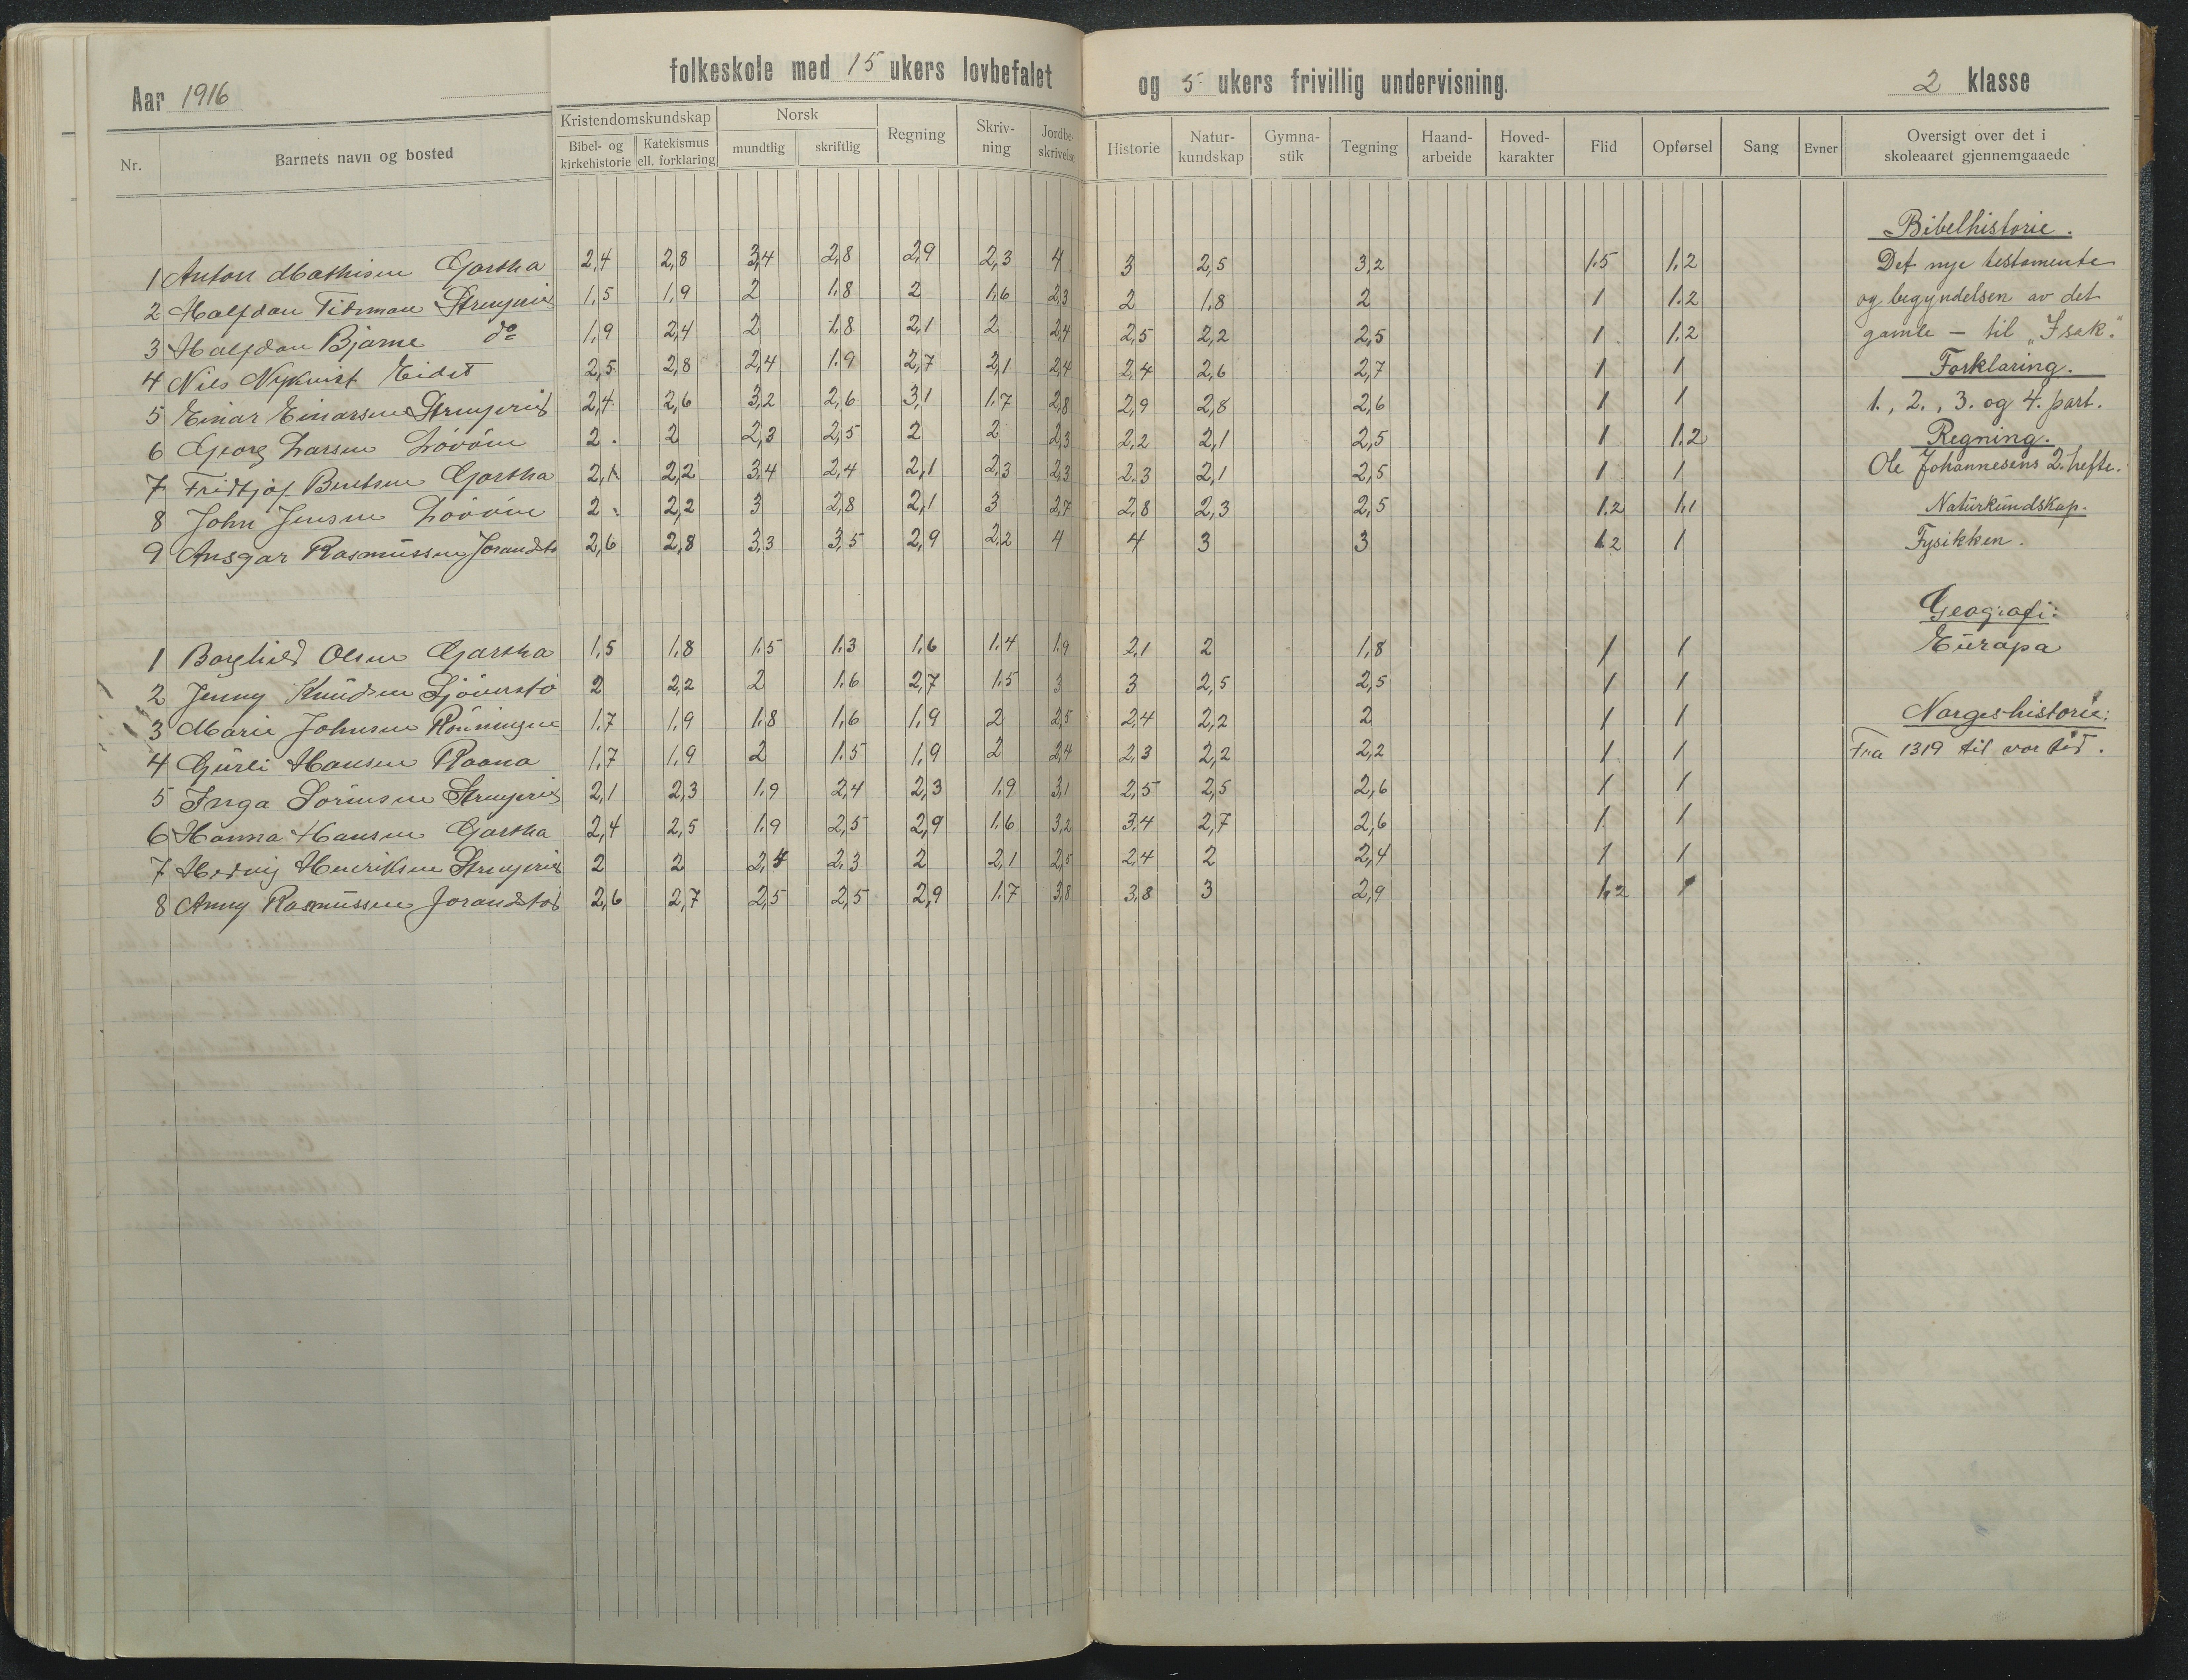 Aar 1916
folkeskole med 15 ukers lovbefalet og 5 ukers frivillig undervisning. 2 klasse
Nr. Barnets navn og bosted Kristendomskundskap Bibel- og kirkehistorie Katekismus ell. forklaring Norsk mundtlig skriftlig Regning Skriv-ning Jordbe-skrivelse Historie Natur-kundskap Gymna-stik Tegning Haand-arbeide Hoved-karakter Flid Opførsel Sang Evner Oversigt over det i skoleaaret gjennemgaaede
1 Anton Mathisen Gartha 2,4 2,8 3,4 2,8 2,9 2,3 4 3 2,5 3,2 1.5 1,2
2 Halfdan Tideman 1,5 1,9 2 1,8 2 1,6 2,3 2 1,8 2 1 1.2
3 Halfdan Bjarne do 1,9 2,4 2 1,8 2,1 2 2,4 2,5 2,2 2,5 1 1.2
4 Nils Nykvist Eidet 2,5 2,8 2,4 1,9 2,7 2,1 2,4 2,4 2,6 2,7 1 1
5 Einar Einarsen 2,4 2,6 3,2 2,6 3,1 1,7 2,8 2,9 2,8 2,6 1 1
6 Georg Larsen Lövöen 2. 2 2,3 2,5 2 2 2,3 2,2 2,1 2,5 1 1.2
7 Fridtjof Berntsen Gartha 2,1 2,2 3,4 2,4 2,1 2,3 2,3 2,3 2,1 2,5 1 1
8 John Jensen Lövöen 2. 2,2 3 2,8 2,1 3 2,7 2,8 2,3 2,5 1,2 1,1
9 Ansgar Rasmussen Jorandstø 2,6 2,8 3,3 3,5 2,9 2,2 4 4 3 3 1.2 1
1 Borghild Olsen Gartha 1,5 1,8 1,5 1,3 1,6 1,4 1,9 2,1 2 1,8 1 1
2 Jenny Knudsen Sjöverstö 2 2,2 2 1,6 2,7 1,5 3 3 2,5 2,5 1 1
3 Marie Johnsen Rönningen 1,7 1,9 1,8 1,6 1,9 2 2,5 2,4 2,2 2 1 1
4 Gurli Hansen Raana 1,7 1,9 2 1,5 1,9 2 2,4 2,3 2,2 2,2 1 1
5 Inga Sörensen 2,1 2,3 1,9 2,4 2,3 1,9 3,1 2,5 2,5 2,6 1 1
6 Hanna Hansen Gartha 2,4 2,5 1,9 2,5 2,9 1,6 3,2 3,4 2,7 2,6 1 1
7 Hedvig Henriksen 2 2 2,4 2,3 2 2,1 2,5 2,4 2 2,4 1 1
8 Anny Rasmussen Jorandstød 2,6 2,7 2,5 2,5 2,9 1,7 3,8 3,8 3 2,9 1,2 1
Bibelhistorie.
Det nye testamente
og begyndelsen av det
gamle — til „Isak."
Forklaring.
1., 2., 3. og 4. part.
Regning.
Ole Johannesens 2. hefte.
Naturkundskap.
Fysikken.
Geografi:
Europa
Norgeshistorie:
Fra 1319 til vor tid.